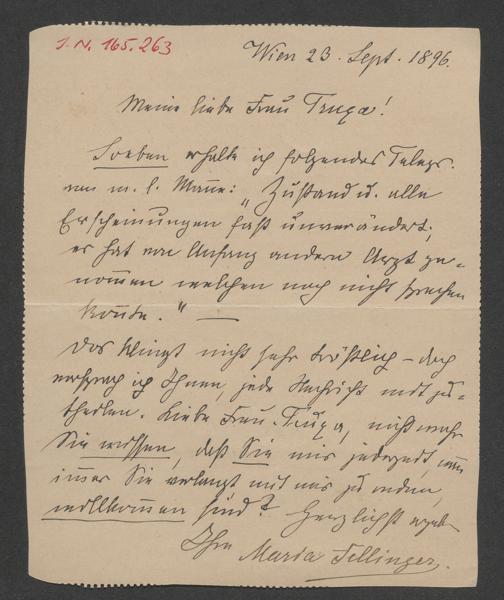 I. N. 165.263
Wien 23. Sept. 1896.
Meine liebe Frau Truxa!
Soeben erhalte ich folgendes Telegr.
von m. l. Manne: „Zustand u. alle
Erscheinungen fast unverändert;
er hat von Anfang andern Arzt ge-
nommen welchen noch nicht sprechen
konnte." —
Das klingt nicht sehr tröstlich – doch
versprach ich Ihnen, jede Nachricht mitzu-
theilen. Liebe Frau Truxa, nicht wahr
Sie wissen, daß Sie mir jederzeit, wann
immer Sie verlangt mit mir zu reden,
willkommen sind? Herzlichst
Ihre Maria Fellinger.